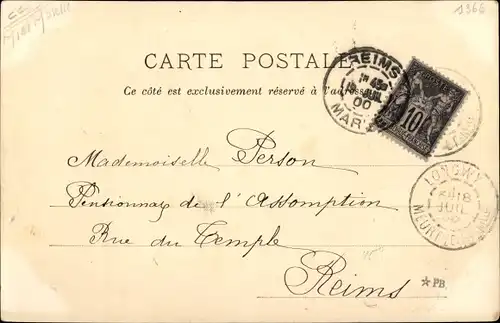 1366
CARTE POSTALE
Ce côté est exclusivement réservé à l'adresse
REIMS
JUIL
00
MAR
10
LONGWY
18
JUIL
Mademoiselle Person
Pensionnat de l'Assomption
Rue du Temple
Reims
*PB